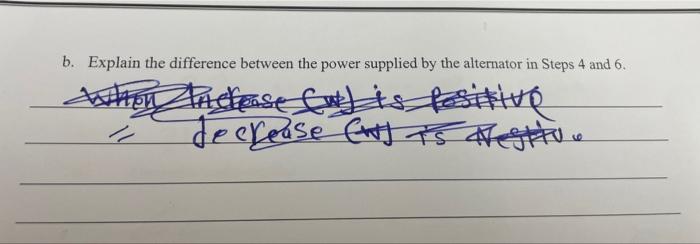 b. Explain the difference between the power supplied by the alternator in Steps 4 and 6.
When Increase (w) is Positive
= decrease (w) is Negitive